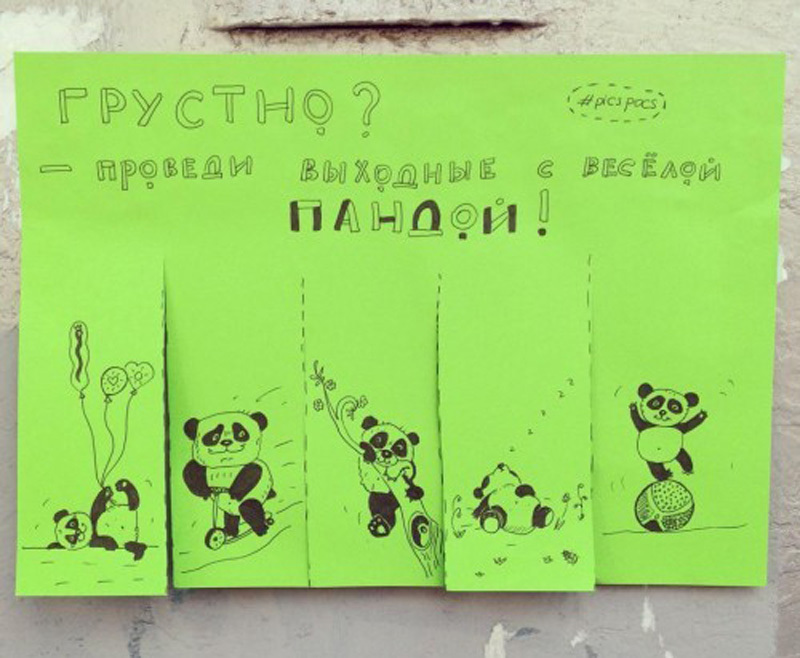 ГРУСТНО?
#picspacs
— ПРОВЕДИ ВЫХОДНЫЕ С ВЕСЁЛОЙ
ПАНДОЙ!
z z z z z